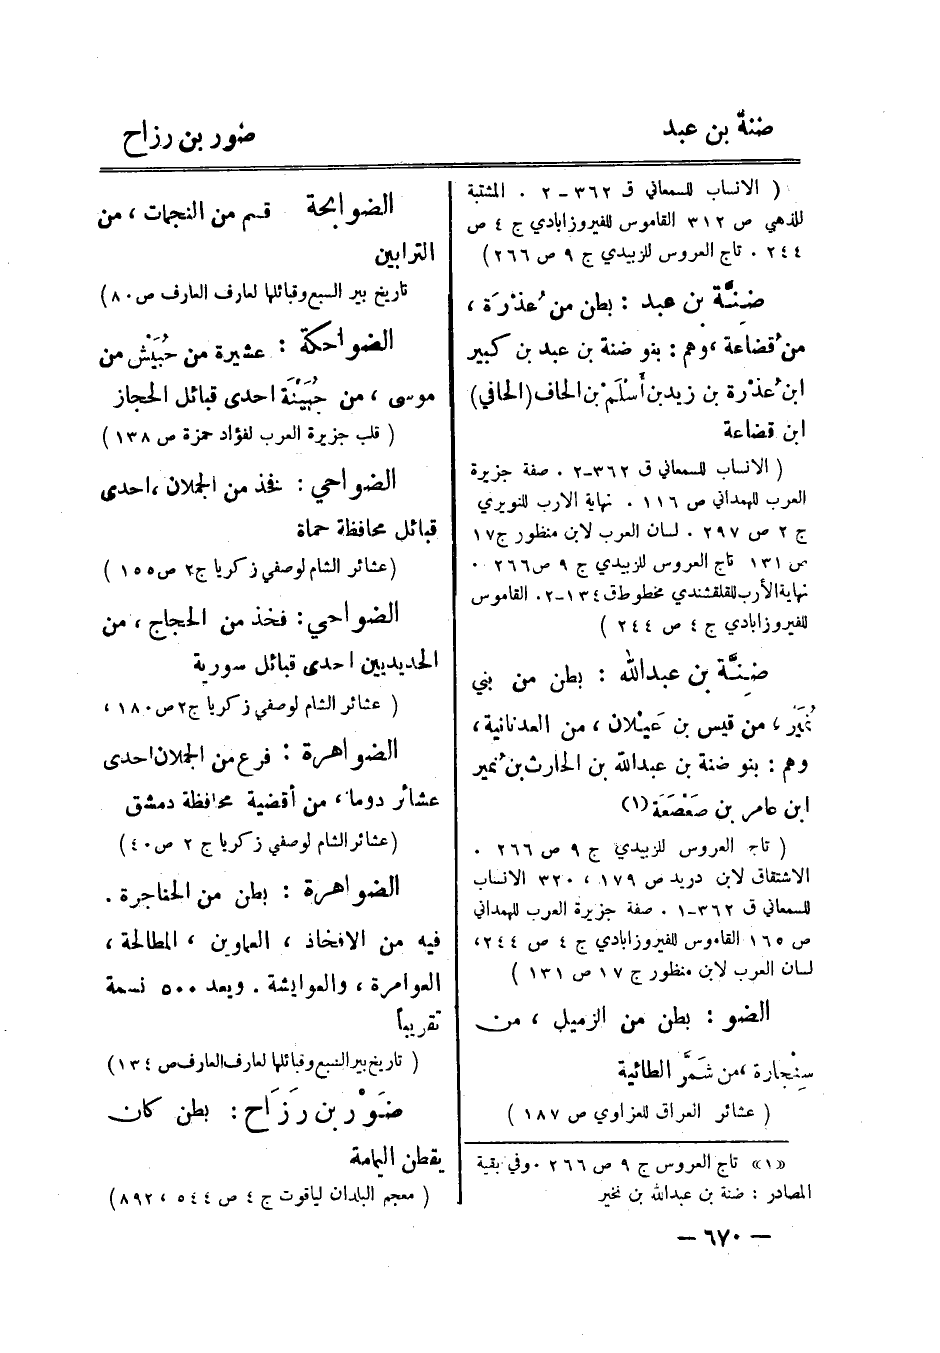 ضنة بن عبد
ضور بن رزاح
( الانساب للسمعاني ق ٣٦٢ـ٢ . المشتبة
للذهي ص ٣١٢ القاموس للفيروزابادي ج ٤ ص
٢٤٤ . تاج العروس للزبيدي ج ٩ ص ٢٦٦)
ضِنَّة بن عبد : بطن من عُذْرَة ،
من قُضاعة ، وهم : بنو ضنة بن عبد بن كبير
ابن عُذْرة بن زيد بن أَسْلَم بن الحاف (الحافي)
ابن قضاعة
( الانساب للسمعاني ق ٣٦٢ـ٢ . صفة جزيرة
العرب للهمداني ص ١١٦ . نهاية الارب للنويري
ج ٢ ص ٢٩٧ . لسان العرب لابن منظور ج ١٧
ص ١٣١ تاج العروس للزبيدي ج ٩ ص ٢٦٦ .
نهاية الأرب للقلقشندي مخطوط ق ١٣٤ـ٢ . القاموس
للفيروزابادي ج ٤ ص ٢٤٤ )
ضِنَّة بن عبدالله : بطن من بني
نُمَير ، من قيس بن عَيْلان ، من العدنانية ،
وهم : بنو ضنة بن عبدالله بن الحارث بن نُمير
ابن عامر بن صَعْصَعَة (١)
( تاج العروس للزبيدي ج ٩ ص ٢٦٦ .
الاشتقاق لابن دريد ص ١٧٩ ، ٣٢٠ الانساب
للسمعاني ق ٣٦٢ـ١ . صفة جزيرة العرب للهمداني
ص ١٦٥ القاموس للفيروزابادي ج ٤ ص ٢٤٤ ،
لسان العرب لابن منظور ج ١٧ ص ١٣١ )
الضو : بطن من الزميل ، من
سِنْجارة ، من شَمَّر الطائية
( عشائر العراق للعزاوي ص ١٨٧ )
«١» تاج العروس ج ٩ ص ٢٦٦ . وفي بقية
المصادر : ضنة بن عبدالله بن نمير
الضوابحة قسم من النجمات ، من
الترابين
تاريخ بير السبع وقبائلها لعارف العارف ص ٨٠)
الضواحكة : عشيرة من حُبَيْش من
موسى ، من جُهَيْنَة احدى قبائل الحجاز
( قلب جزيرة العرب لفؤاد حمزة ص ١٣٨ )
الضواحي : فخذ من الجملان ، احدى
قبائل محافظة حماة
(عشائر الشام لوصفي زكريا ج٢ ص ١٥٥ )
الضواحي : فخذ من الحجاج ، من
الحديديين احدى قبائل سورية
( عشائر الشام لوصفي زكريا ج٢ ص ١٨٠ ،
الضواهرة : فرع من الجملان احدى
عشائر دوما ، من أقضية محافظة دمشق
(عشائر الشام لوصفي زكريا ج ٢ ص ٤٠)
الضواهرة : بطن من الحناجرة .
فيه من الافخاذ ، العماوين ، المطالحة ،
العوامرة ، والعوايشة . ويعد ٥٠٠ نسمة
تقريباً
( تاريخ بير السبع وقبائلها لعارف العارف ص ١٣٤)
ضَوْر بن رَزَاح : بطن كان
يقطن اليمامة
( معجم البلدان لياقوت ج ٤ ص ٥٤٤ ، ٨٩٢)
— ٦٧٠ —